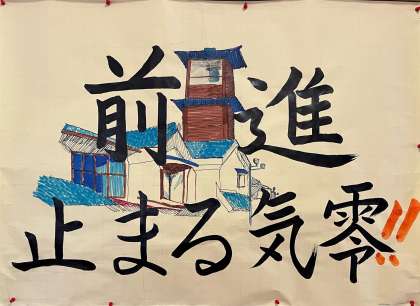 前進
止まる気零!!